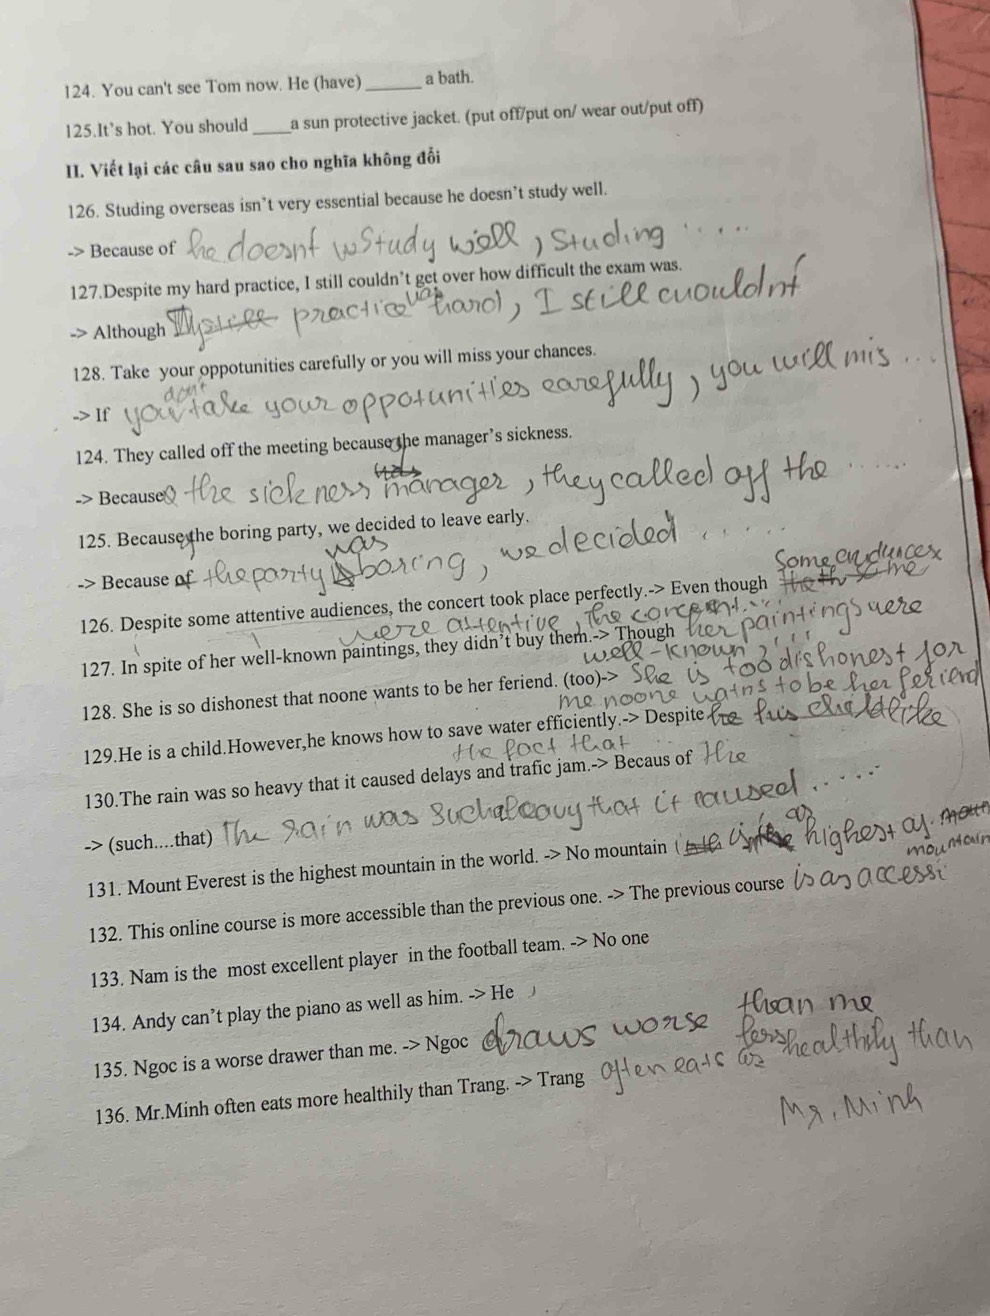 124. You can't see Tom now. He (have)______ a bath.
125.It's hot. You should ____a sun protective jacket. (put off/put on/ wear out/put off)
II. Viết lại các câu sau sao cho nghĩa không đổi
126. Studing overseas isn't very essential because he doesn't study well.
-> Because of he doesnt study well, studing ....
127.Despite my hard practice, I still couldn't get over how difficult the exam was.
-> Although My practice was hard, I still couldnt
128. Take your oppotunities carefully or you will miss your chances.
don't
-> If you take your oppotunities carefully, you will mis ...
124. They called off the meeting because the manager's sickness.
of
-> Because the sickness manager, they called off the .....
125. Because the boring party, we decided to leave early.
of
was
-> Because of the party boring, we decided ....
some audiences
126. Despite some attentive audiences, the concert took place perfectly.-> Even though
were attentive, the concert...
127. In spite of her well-known paintings, they didn't buy them.-> Though her paintings were
well-known
128. She is so dishonest that noone wants to be her feriend. (too)-> She is too dishonest for
me noone to be her feriend
129.He is a child.However,he knows how to save water efficiently.-> Despite his childlike
the fact that
130.The rain was so heavy that it caused delays and trafic jam.-> Becaus of The
-> (such....that) The rain was such a heavy that it caused .....
131. Mount Everest is the highest mountain in the world. -> No mountain is as highest as
mountain
132. This online course is more accessible than the previous one. -> The previous course is as accessi
133. Nam is the most excellent player in the football team. -> No one
134. Andy can't play the piano as well as him. -> He
135. Ngoc is a worse drawer than me. -> Ngoc draws worse than me
136. Mr.Minh often eats more healthily than Trang. -> Trang often eats less healthily than
Mr. Minh